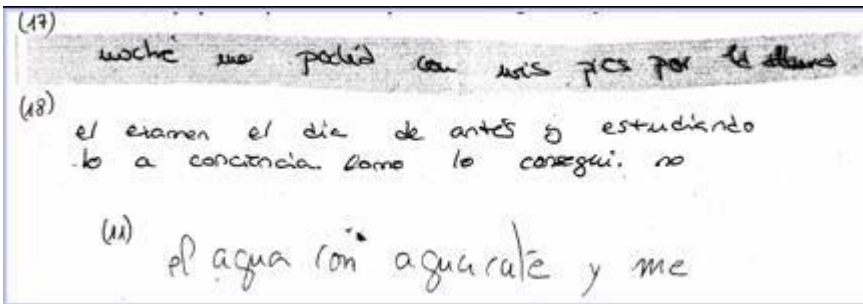 (17)
noche no podia con mis pies por la
(18)
el examen el dia de antes y estudiando
lo a conciencia. Como lo consegui. no
(11)
el agua con aguacate y me